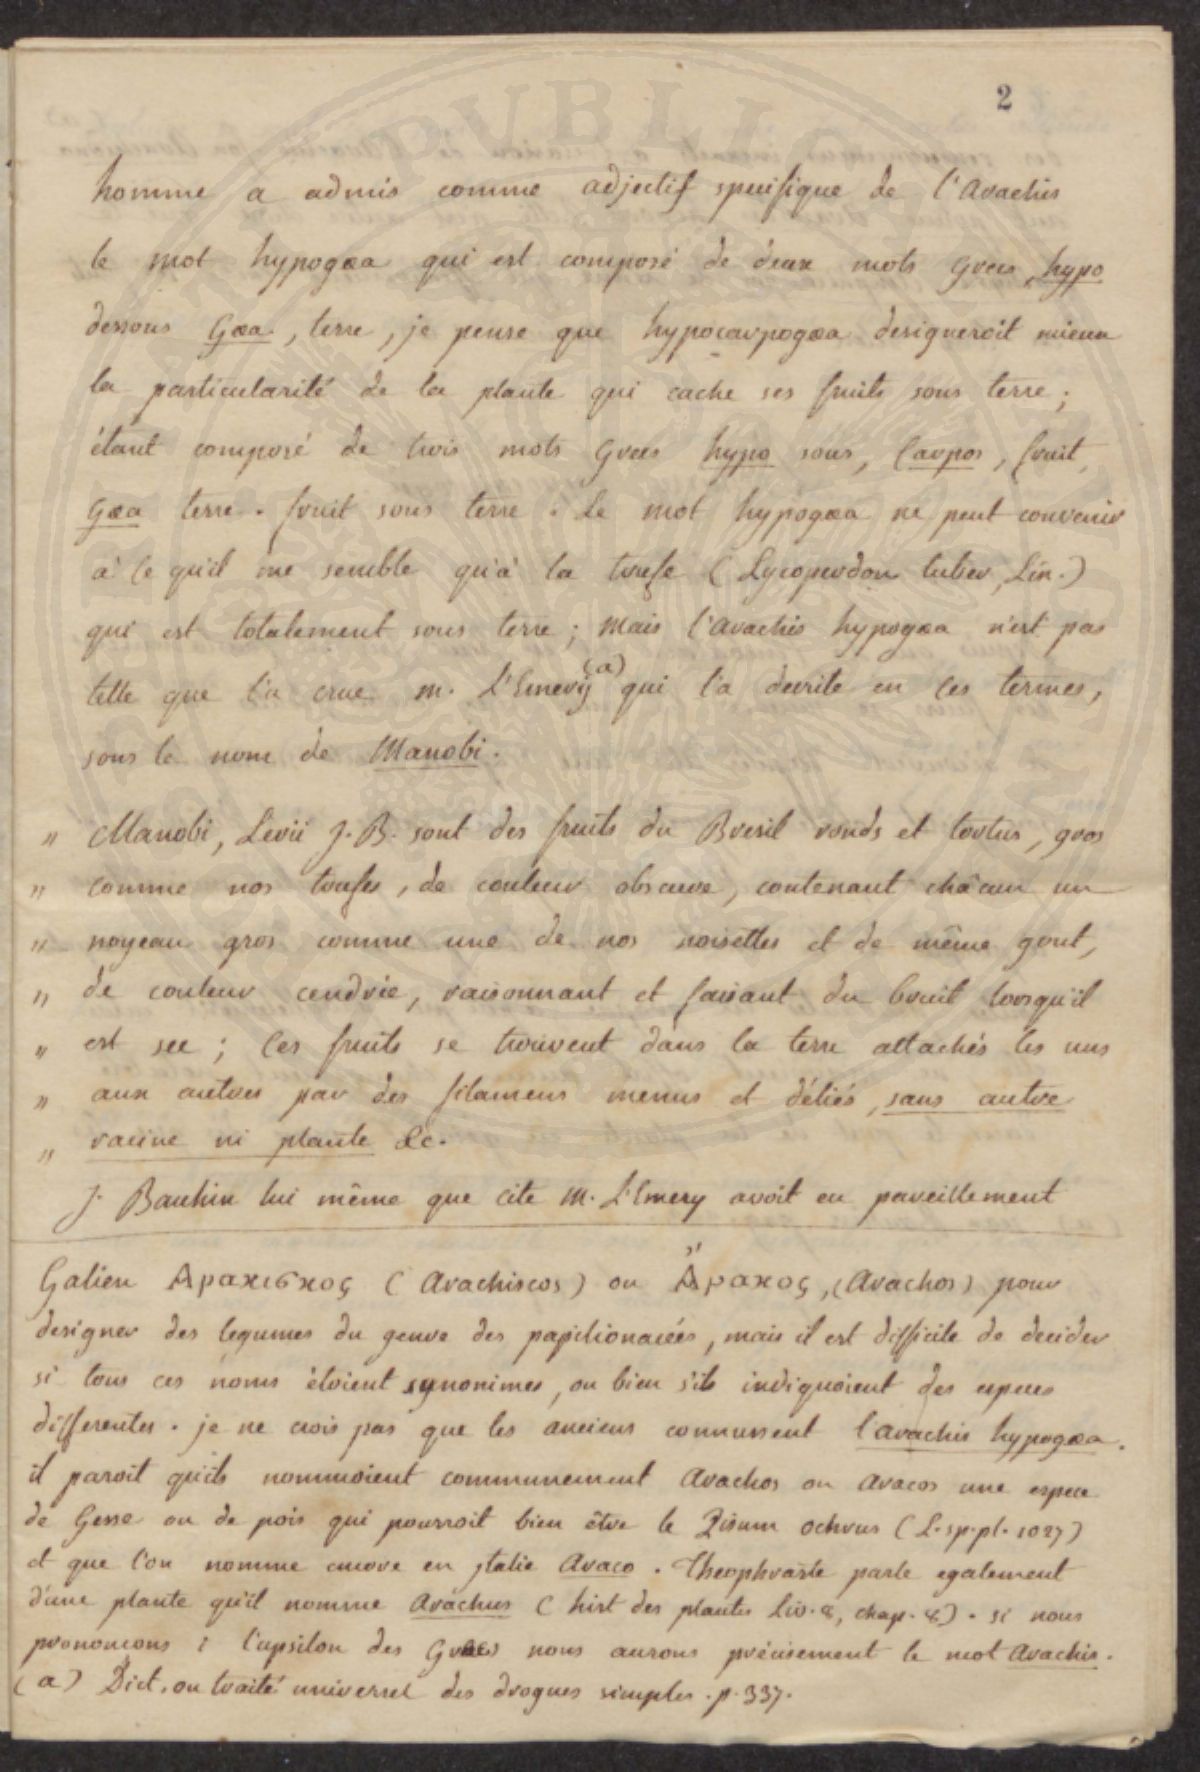 2
homme a admis comme adjectif specifique de l'Arachis
le mot hypogæa qui est composé de deux mots Grecs hypo
dessous Gæa, terre, je pense que hypocarpogæa designeroit mieux
la particularité de la plante qui cache ses fruits sous terre;
étant composé de trois mots Grecs hypo sous, Carpos, fruit,
Gæa terre. fruit sous terre. Le mot hypogæa ne peut convenir
à ce qu'il me semble qu'à la trufe (Lycoperdon tuber, Lin.)
qui est totalement sous terre; mais l'arachis hypogæa n'est pas
telle que l'a crue m. L'Emery (a) qui l'a decrite en ces termes,
sous le nom de Manobi.
" Manobi, Levii J. B. sont des fruits du Bresil ronds et tortus, gros
" comme nos trufes, de couleur obscure, contenant châcun un
" noyeau gros comme une de nos noisettes et de même gout,
" de couleur cendrée, raisonnant et faisant du bruit lorsqu'il
" est sec; ces fruits se trouvent dans la terre attachés les uns
" aux autres par des filamens menus et déliés, sans autre
" racine ni plante &c.
J. Bauhin lui même que cite m. L'Emery avoit eu pareillement
Galien Αραχισκος (Arachiscos) ou Ἄραχος, (Arachos) pour
designer des legumes du genre des papilionacées, mais il est difficile de decider
si tous ces noms étoient synonimes, ou bien s'ils indiquoient des especes
differentes. je ne crois pas que les anciens connussent l'arachis hypogæa.
il paroit qu'ils nommoient communement Arachos ou Aracos une espece
de Gesse ou de pois qui pourroit bien être le Pisum ochrus (L. sp. pl. 1027)
et que l'on nomme encore en jtalie Araco. Theophraste parle egalement
d'une plante qu'il nomme Arachus (hist des plantes Liv. 8, chap. 8). si nous
prononcons i l'upsilon des Grecs nous aurons précisement le mot Arachis.
(a) Dict. ou traité universel des drogues simples. p. 337.